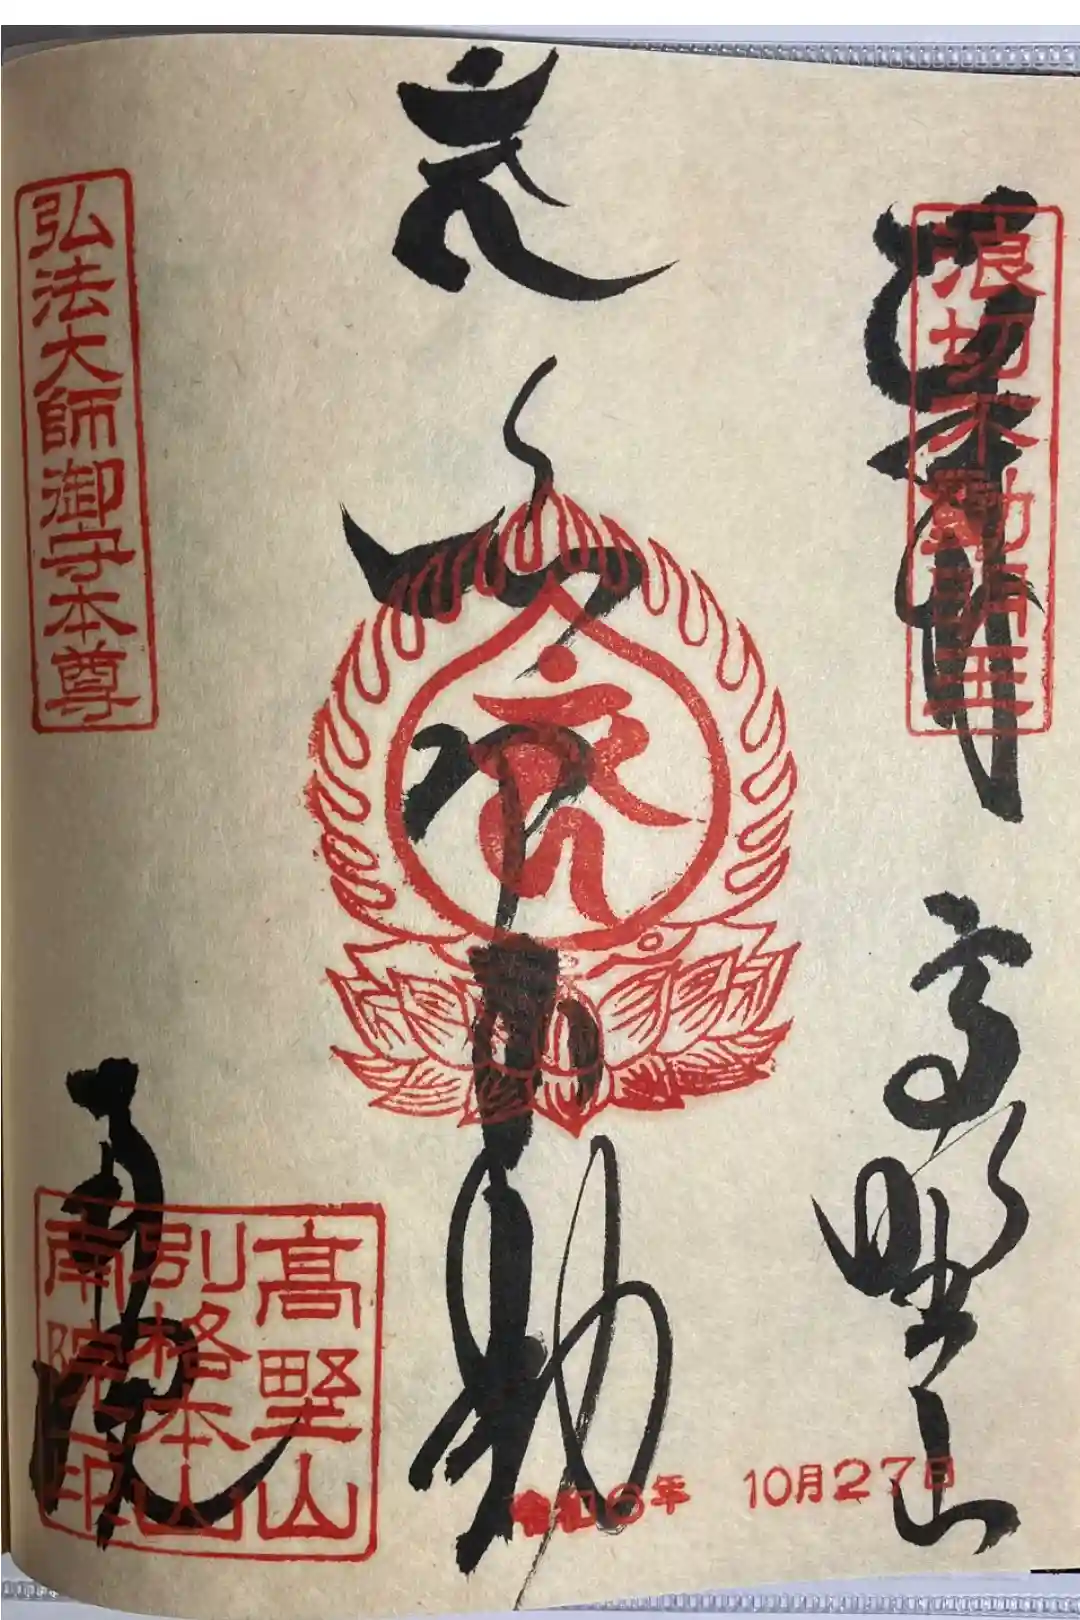 奉拝
高野山
浪切不動明王
令和6年 10月27日
不動
弘法大師御守本尊
南院
高野山
別格本山
南院印